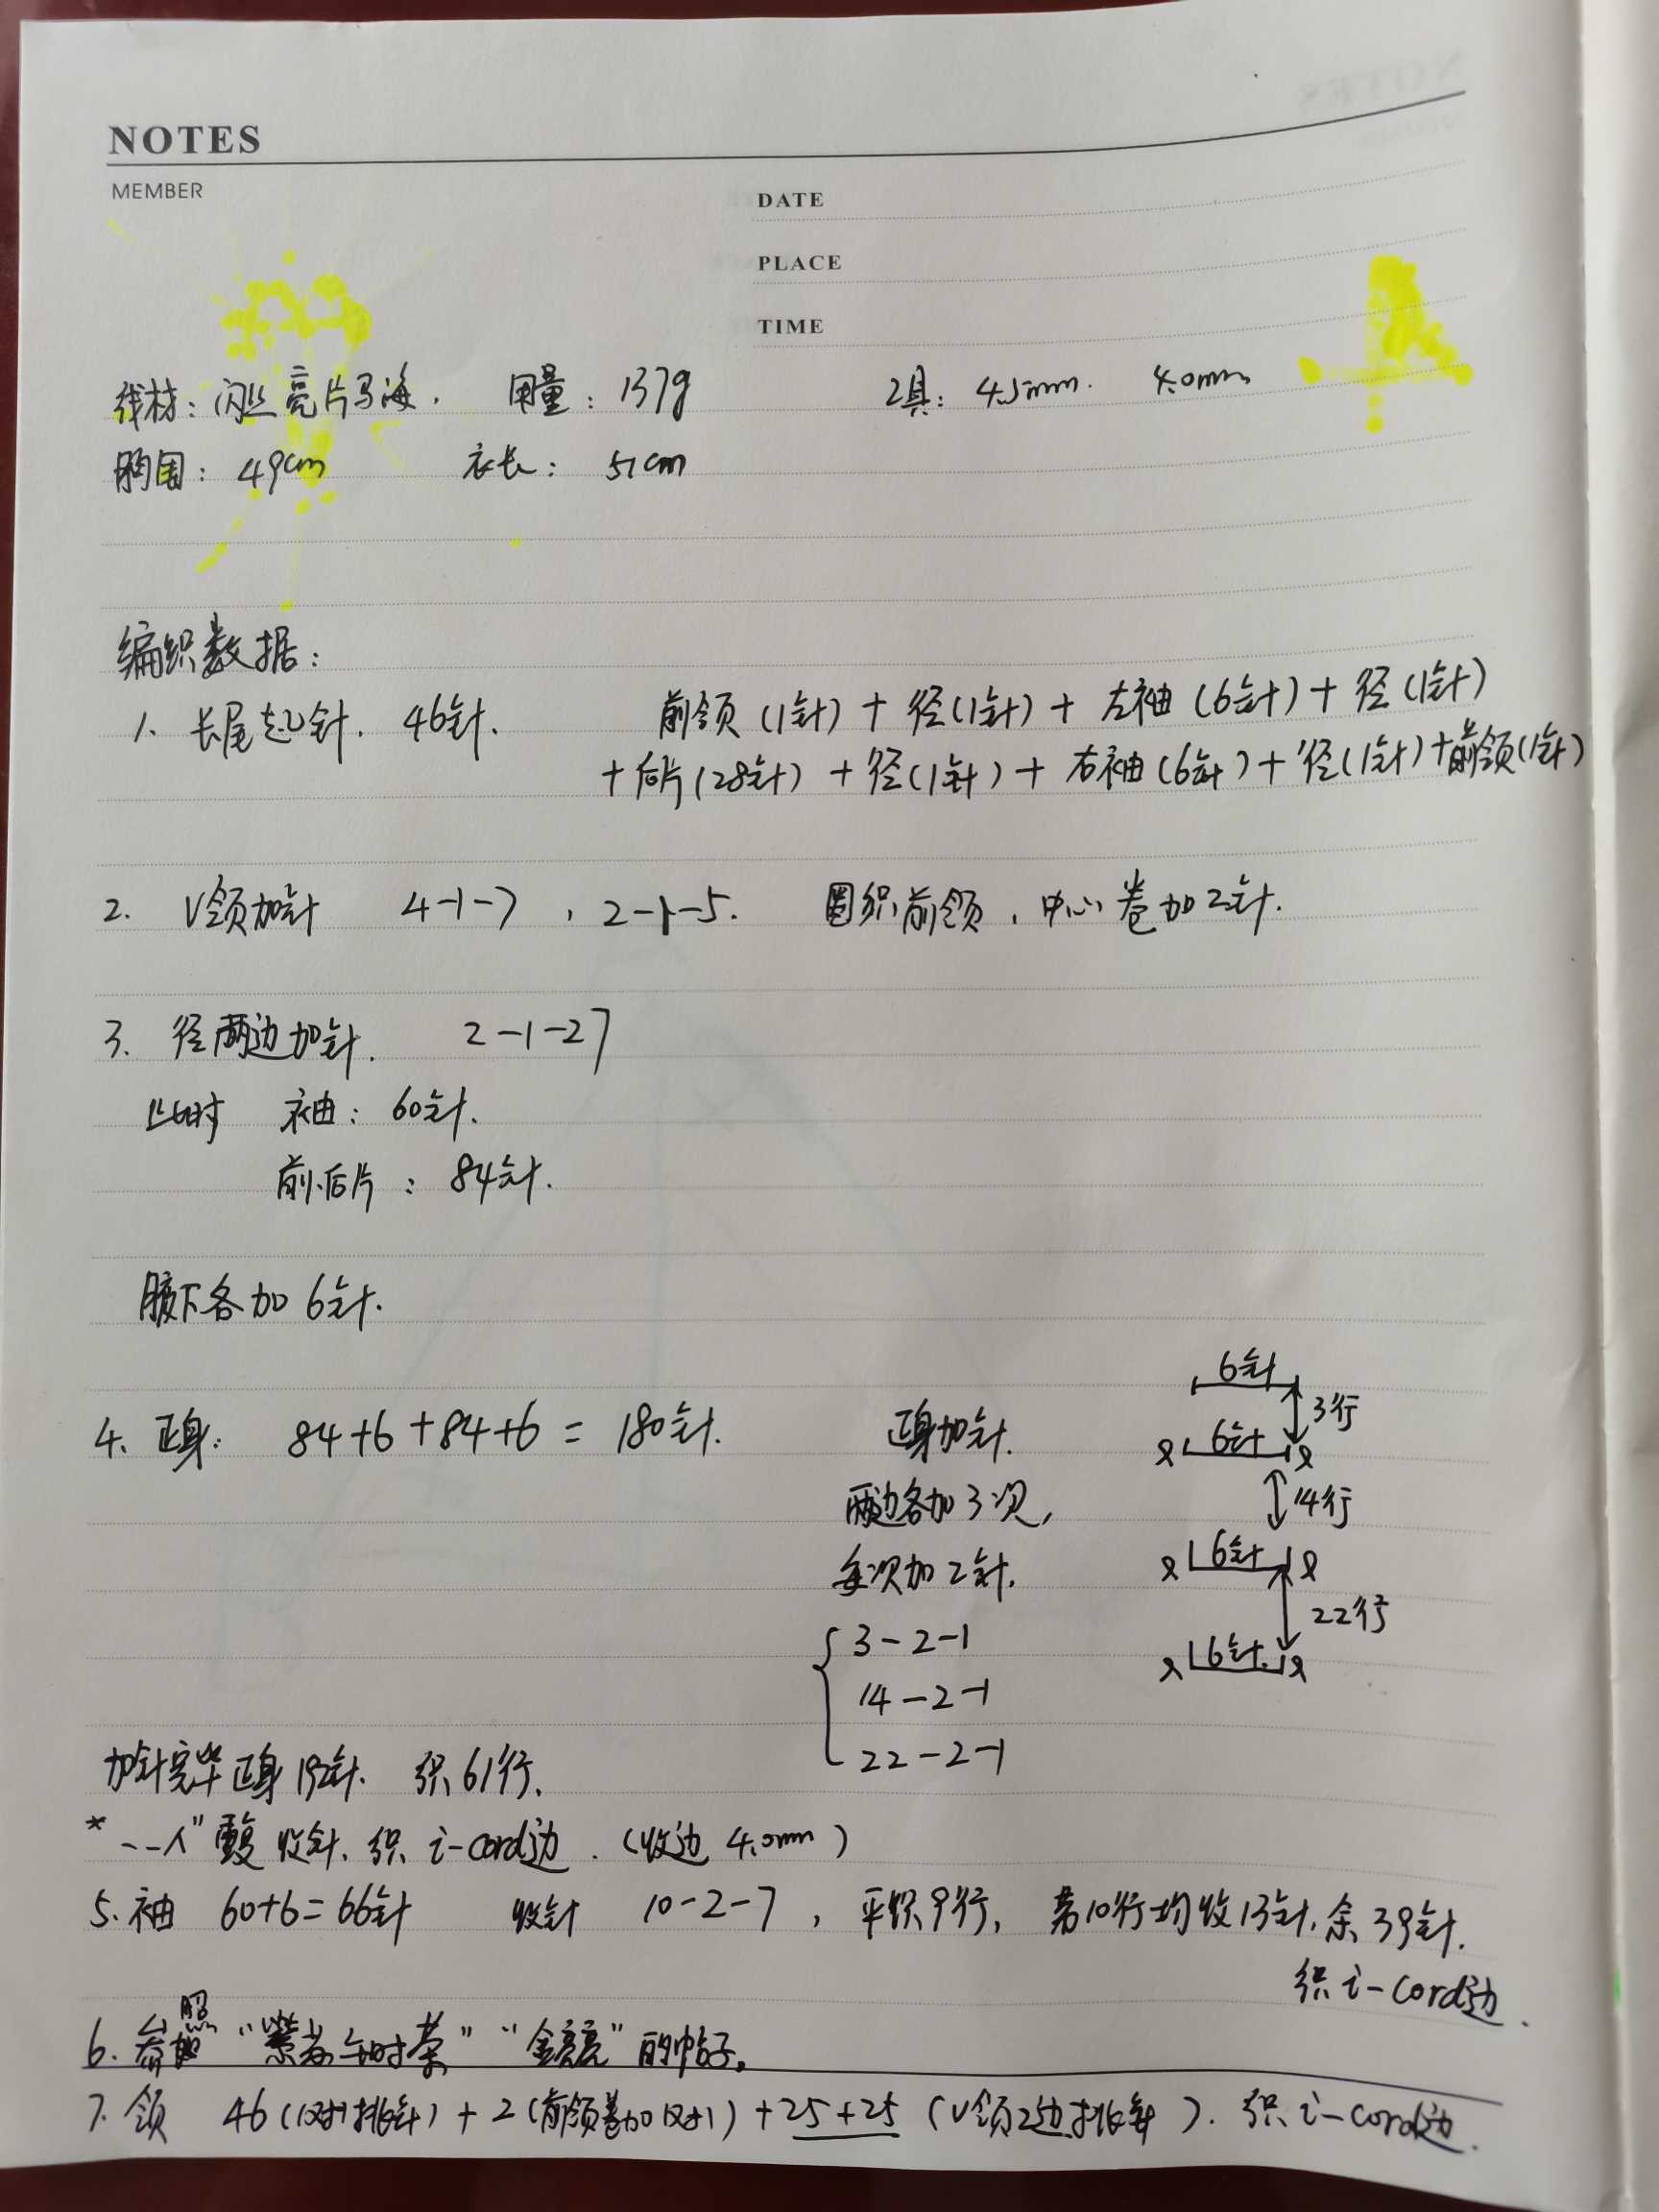 NOTES
MEMBER
DATE
PLACE
TIME
线材：闪丝亮片马海． 用量：137g 工具：4.5mm. 4.0mm
胸围：49cm 衣长：51cm
编织数据：
1. 长尾起针． 46针． 前领（1针）+ 径（1针）+ 左袖（6针）+ 径（1针）
+ 后片（28针）+ 径（1针）+ 右袖（6针）+ 径（1针）+ 前领（1针）
2. V领加针 4-1-7，2-1-5． 圈织前领，中心卷加2针．
3. 径两边加针． 2-1-27
此时 袖：60针．
前.后片：84针．
腋下各加6针．
6针
3行
4. 正身： 84+6+84+6=180针． 正身加针． 6针
两边各加3次， 14行
每次加2针． 6针
22行
3-2-1
6针
14-2-1
22-2-1
加针完毕正身192针． 织61行．
*"--人"重复收针．织i-cord边．（收边4.0mm）
5. 袖 60+6=66针 收针 10-2-7，平织9行，第10行均收13针．余39针．
织i-cord边．
6. 参照"紫苏午时茶""金亮亮"的帖子。
7. 领 46（1对1挑针）+2（前领卷加1对1）+25+25（V领2边挑针）．织i-cord边．